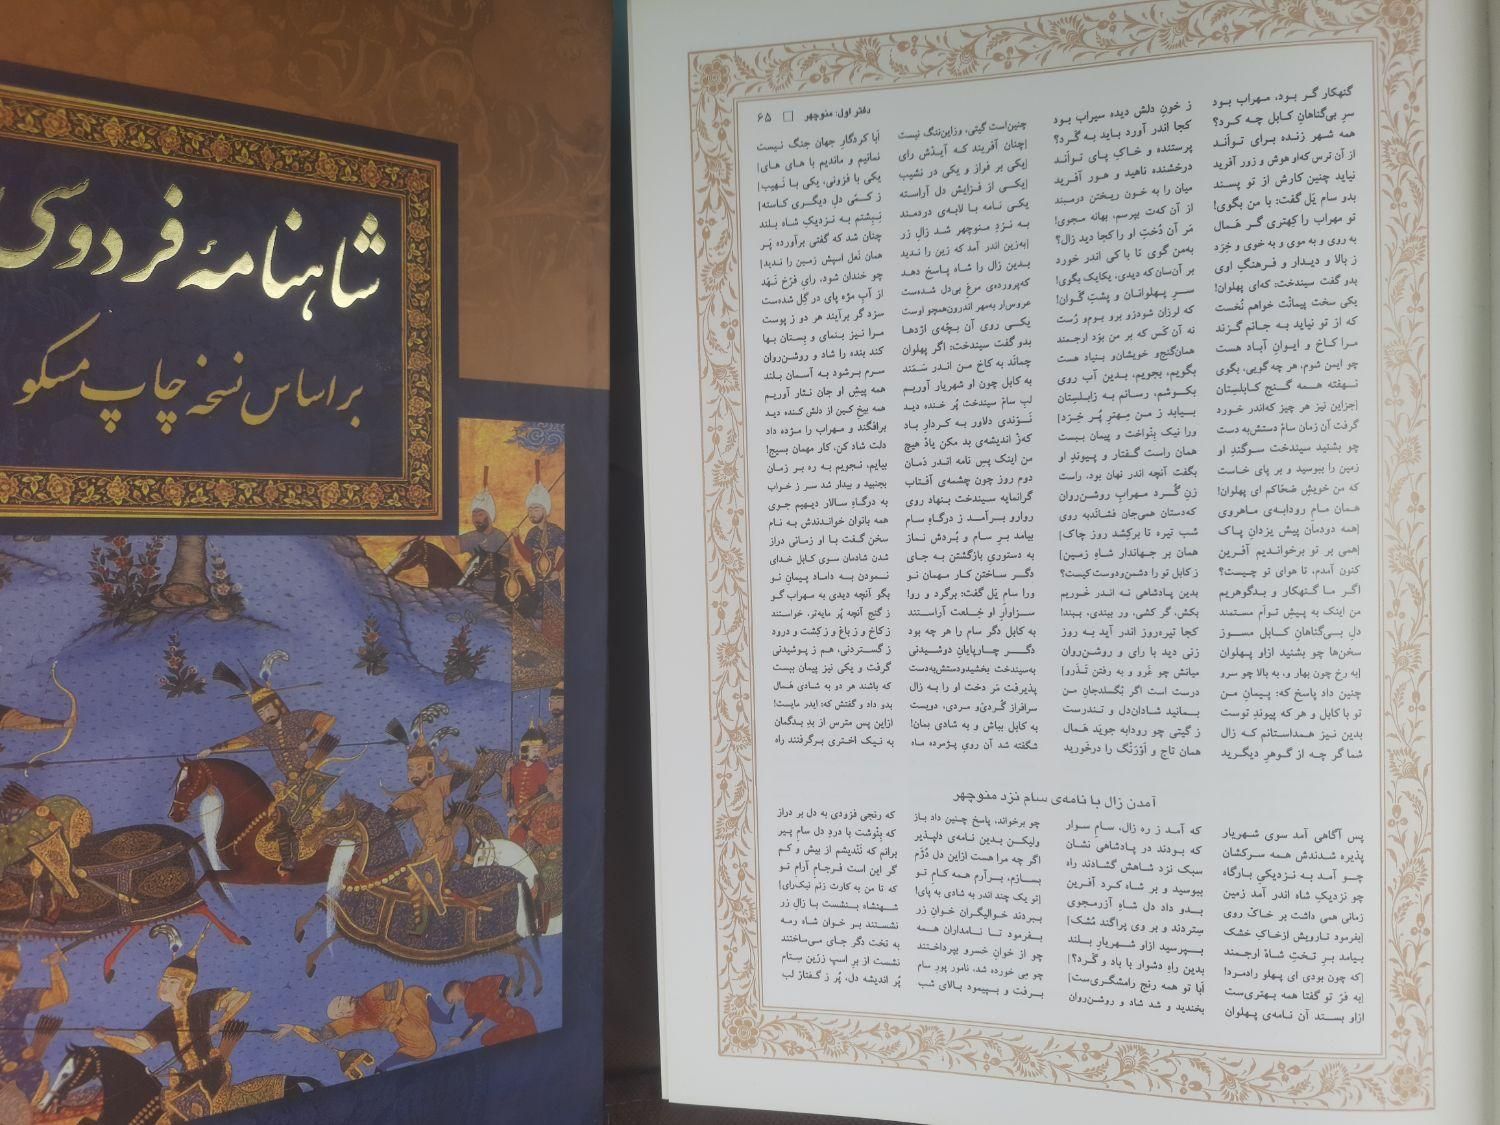 شاهنامهٔ فردوسی
بر اساس نسخه چاپ مسکو
دفتر اول: منوچهر □ ۶۵
گنهکار گر بود، مهراب بود ز خونِ دلش دیده سیراب بود
سرِ بی‌گناهانِ کابل چه کرد؟ کجا اندر آورد باید به گَرد؟
همه شهر زنده برای تواَند پرستنده و خاکِ پای تواَند
از آن ترس که‌او هوش و زور آفرید درخشنده ناهید و هور آفرید
نیاید چنین کارش از تو پسند میان را به خون ریختن درمبند
بدو سام یَل گفت: با من بگوی! از آن کَه‌ت بپرسم، بهانه مجوی!
تو مهراب را کِهتری گر هَمال مَر آن دُختِ او را کجا دید زال؟
به روی و به موی و به خوی و خِرَد به‌من گوی تا با کی اندر خورد
ز بالا و دیدار و فرهنگِ اوی بر آن‌سان که دیدی، یکایک بگوی!
بدو گفت سیندخت: که‌ای پهلوان! سرِ پهلوانان و پشتِ گَوان!
یکی سخت پیمانْت خواهم نُخست که لرزان شودزو برو بوم‌و رُست
که از تو نیاید به جانم گزند نه آن کَس که بر من بوَد ارجمند
مرا کاخ و ایوانِ آباد هست همان‌گنج‌و خویشان‌و بنیاد هست
چو ایمن شوم، هر چه گویی، بگوی بگویم، بجویم، بدین آب روی
نهفته همه گنج کابلستان بکوشم، رسانم به زابلستان
[جزاین نیز هر چیز که‌اندر خورد بیابد ز من مِهترِ پُر خِرَد]
گرفت آن زمان سامْ دستش‌به دست ورا نیک بِنْواخت و پیمان ببست
چو بشنید سیندخت سوگندِ او همان راست گفتار و پیوندِ او
زمین را ببوسید و بر پای خاست بگفت آنچه اندر نهان بود، راست
که من خویشِ ضحّاکم ای پهلوان! زنِ گُرد مهرابِ روشن‌روان
همان مامِ رودابه‌ی ماهروی که‌دستان همی‌جان فشانَدبه روی
[همه دودمان پیش یزدانِ پاک شبِ تیره تا برکِشد روز چاک]
[همی بر تو برخواندیم آفرین همان بر جهاندار شاهِ زمین]
کنون آمدم، تا هوای تو چیست؟ ز کابل تو را دشمن‌ودوست کیست؟
اگر ما گنهکار و بدگوهریم بدین پادشاهی نه اندر خَوریم
من اینک به پیشِ تواَم مستمند بکش، گر کشی، ور ببندی، ببند!
دلِ بی‌گناهانِ کابل مسوز کجا تیره‌روز اندر آید به روز
سخن‌ها چو بشنید ازاو پهلوان زنی دید با رای و روشن‌روان
[به رخ چون بهار و، به بالا چو سرو میانش چو غَرو و به رفتن تَذَرو]
چنین داد پاسخ که: پیمانِ من درست است اگر بُگسلدجانِ من
تو با کابل و هر که پیوندِ توست بمانید شادان‌دل و تندرست
بدین نیز همداستانم که زال ز گیتی چو رودابه جویَد هَمال
شما گر چه از گوهرِ دیگرید همان تاج و اَوْرَنگ را درخَورید
چنین‌است گیتی، وزاین‌ننگ نیست اَبا کردگارِ جهان جنگ نیست
[چنان آفریند که آیدْش رای نمانیم و ماندیم با های های]
[یکی بر فراز و یکی در نشیب یکی با فزونی، یکی با نَهیب]
[یکی از فزایش دل آراسته ز کمّی دلِ دیگری کاسته]
یکی نامه با لابه‌ی دردمند نِبِشتم به نزدیکِ شاه بلند
به نزدِ منوچهر شد زالِ زر چنان شد که گفتی برآورده پَر
[به‌زین اندر آمد که زین را ندید همان نَعل اسپش زمین را ندید]
بدین زال را شاه پاسخ دهد چو خندان شود، رایِ فرّخ نَهَد
که‌پرورده‌ی مرغِ بی‌دل شده‌ست از آبِ مژه پای در گِل شده‌ست
عروس‌ار به‌مهر اندرون‌همچو اوست سزد گر برآیند هر دو ز پوست
یکی روی آن بچّه‌ی اژدها مرا نیز بنمای و بِستان بها
بدو گفت سیندخت: اگر پهلوان کند بنده را شاد و روشن‌روان
چمانَد به کاخِ من اندر سَمَند سرم برشود به آسمانِ بلند
به کابل چون او شهریار آوریم همه پیشِ او جان نثار آوریم
لب سامْ سیندخت پُر خنده دید همه بیخِ کین از دلش کنده دید
نَوَندی دلاور به کردارِ باد برافگند و مهراب را مژده داد
که‌ز اندیشه‌ی بد مکن یاد هیچ دلت شاد کن، کار مهمان بسیج!
من اینک پسِ نامه اندر دَمان بیایم، نجویم به ره بر زمان
دوم روز چون چشمه‌ی آفتاب بجنبید و بیدار شد سر ز خواب
گرانمایه سیندخت بنهاد روی به درگاهِ سالارِ دیهیم جوی
روارو برآمد ز درگاهِ سام همه بانوان خواندندش به نام
بیامد برِ سام و بُردش نماز سخن گفت با او زمانی دراز
به دستوریِ بازگشتن به جای شدن شادمان سوی کابل خدای
دگر ساختن کارِ مهمانِ نو نمودن به داماد پیمانِ نو
ورا سام یَل گفت: برگرد و رو! بگو آنچه دیدی به مهرابِ گو
سزاوارِ او خِلعت آراستند ز گنج آنچه پُر مایه‌تر، خواستند
به کابل دگر سام را هر چه بود ز کاخ و ز باغ و ز کِشت و درود
دگر چارپایانِ دوشیدنی ز گستردنی، هم ز پوشیدنی
به‌سیندخت بخشیدودستش‌به‌دست گرفت و یکی نیز پیمان ببست
پذیرفت مَر دختِ او را به زال که باشند هر دو به شادی هَمال
سرافراز گُردی‌و مردی، دویست بدو داد و گفتش که: ایدر مایست!
به کابل بباش و به شادی بمان! ازاین پس مترس از بدِ بدگمان
شگفته شد آن رویِ پژمرده ماه به نیک اختری برگرفتند راه
آمدن زال با نامه‌ی سام نزد منوچهر
پس آگاهی آمد سوی شهریار که آمد ز ره زال، سامِ سوار
پذیره شدندش همه سرکشان که بودند در پادشاهی نشان
چو آمد به نزدیکیِ بارگاه سبک نزد شاهش گشادند راه
چو نزدیکِ شاه اندر آمد زمین ببوسید و بر شاه کرد آفرین
زمانی همی داشت بر خاک روی بدو داد دل شاهِ آزرمجوی
[بفرمود تارویش ازخاکِ خشک سِتردند و بر وی پراگند مُشک]
بیامد برِ تختِ شاهْ ارجمند بپرسید ازاو شهریارِ بلند
[که چون بودی ای پهلو رادمرد! بدین راهِ دشوار با باد و گَرد؟]
[به فَرّ تو گفتا همه بهتری‌ست اَبا تو همه رنج رامشگری‌ست]
ازاو بستد آن نامه‌ی پهلوان بخندید و شد شاد و روشن‌روان
چو برخواند، پاسخ چنین داد باز که رنجی فزودی به دل بر دراز
ولیکن بدین نامه‌ی دلپذیر که بِنْوشت با دردِ دل سامِ پیر
اگر چه مرا هست ازاین دل دُژَم برانم که نَنْدیشم از بیش و کم
بسازم، برآرم همه کامِ تو گر این است فرجامِ آرامِ تو
[تو یک چند اندر به شادی به پای! که تا من به کارت زنم نیک‌رای]
ببردند خوالیگران خوانِ زر شهنشاه بنشست با زالِ زر
بفرمود تا نامداران همه نشستند بر خوانِ شاهِ رمه
چو از خوانِ خسرو بپرداختند به تختِ دگر جای می‌ساختند
چو می خورده شد، نامور پورِ سام نشست از بر اسپِ زرّین سِتام
برفت و بپیمود بالای شب پُر اندیشه دل، پُر ز گفتار لب